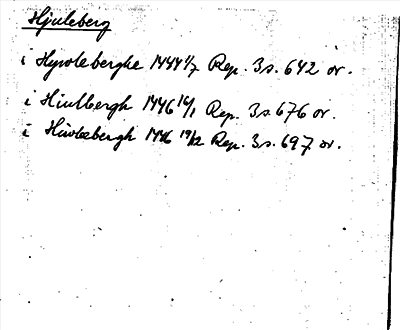 Hjuleberg
i Hywleberghe 1444 1/7 Rep. 3 s. 642 or.
i Hiulbergh 1446 16/1 Rep. 3 s. 676 or.
i Hiwlebergh 1446 19/12 Rep. 3 s. 697 or.